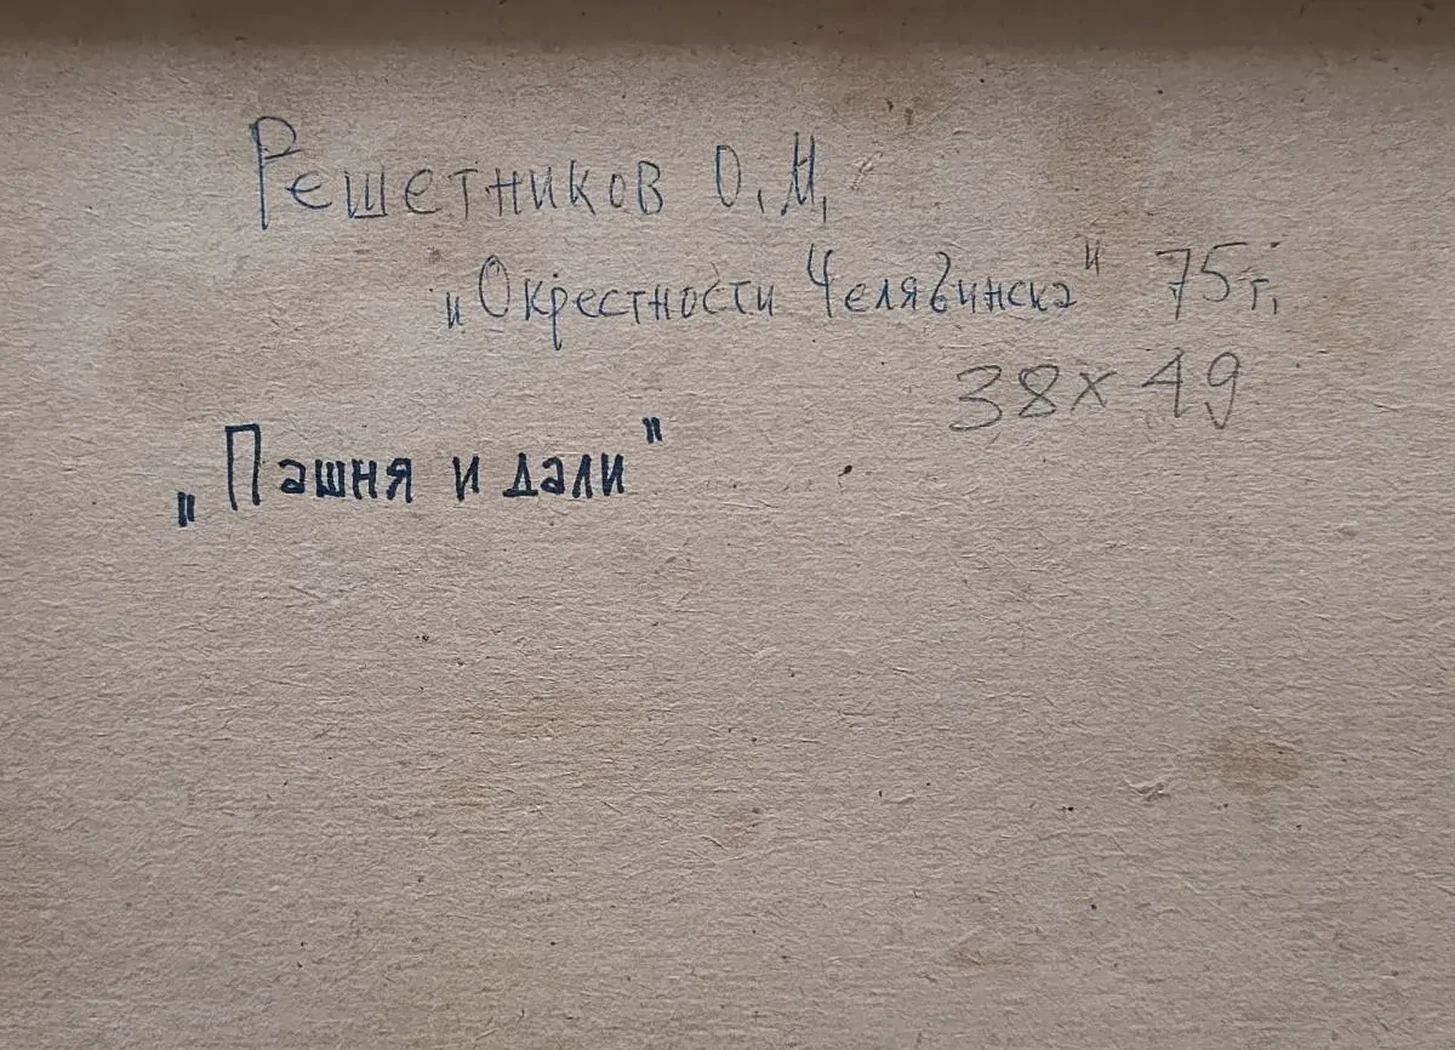 Решетников О.М.
"Окрестности Челябинска" 75г.
38х49
„Пашня и дали"